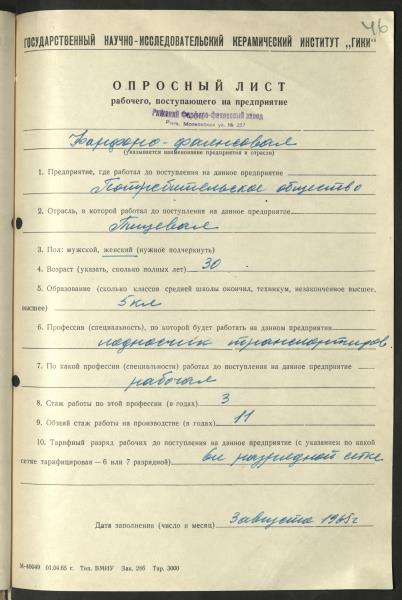 46
ГОСУДАРСТВЕННЫЙ НАУЧНО-ИССЛЕДОВАТЕЛЬСКИЙ КЕРАМИЧЕСКИЙ ИНСТИТУТ „ГИКИ“
ОПРОСНЫЙ ЛИСТ
рабочего, поступающего на предприятие
Рижский фарфоро-фаянсовый завод
Рига, Московская ул. № 257
фаянсовая
(указывается наименование предприятия и отрасли)
1. Предприятие, где работал до поступления на данное предприятие
Потребительское общество
2. Отрасль, в которой работал до поступления на данное предприятие
Пищевая
3. Пол: мужской, женский (нужное подчеркнуть)
4. Возраст (указать, сколько полных лет) 30
5. Образование (сколько классов средней школы окончил, техникум, незаконченное высшее,
высшее) 5 кл
6. Профессия (специальность), по которой будет работать на данном предприятии
подносчик транспортиров.
7. По какой профессии (специальности) работал до поступления на данное предприятие
рабочая
8. Стаж работы по этой профессии (в годах) 3
9. Общий стаж работы на производстве (в годах) 11
10. Тарифный разряд рабочих до поступления на данное предприятие (с указанием по какой
сетке тарифицирован — 6 или 7 разрядной) разрядной сетке
Дата заполнения (число и месяц) 3 августа 1965 г
М-46049 01.04.65 г. Тип. ВМИУ Зак. 266 Тир. 3000